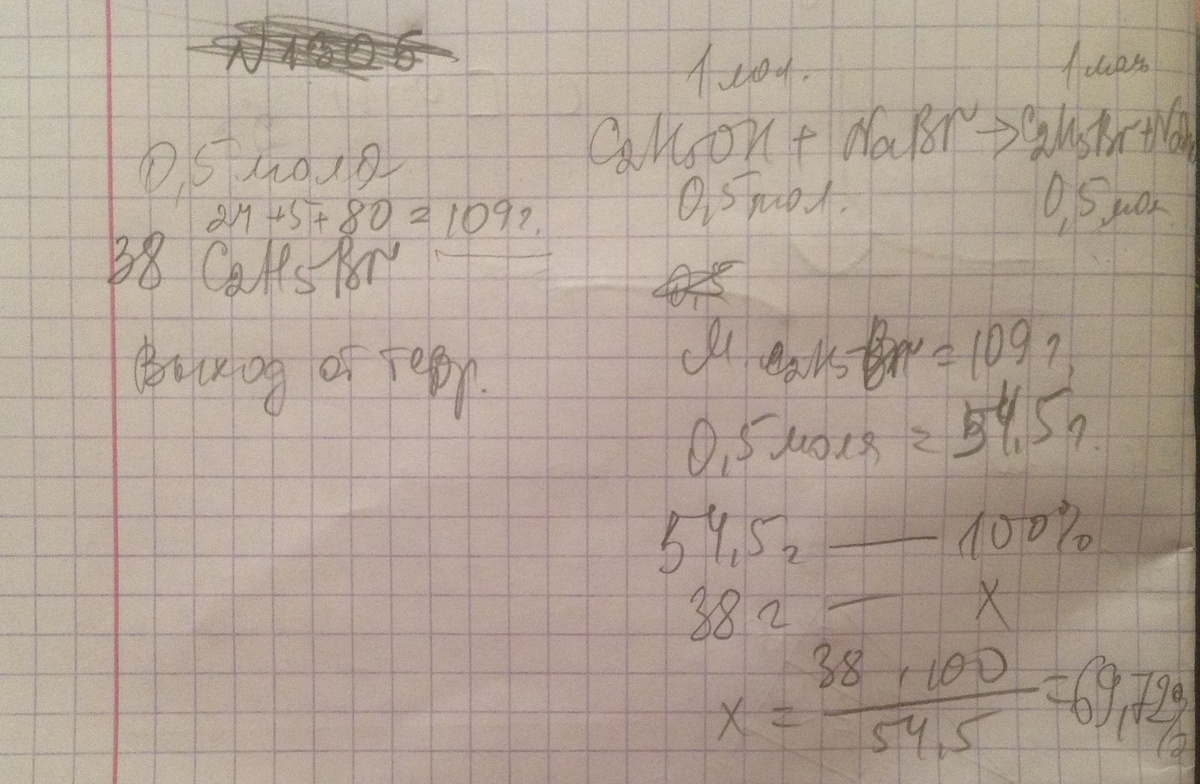 N1306
0,5 моля
24+5+80=109г.
38 C2H5Br
Выход от теор.
1 мол. 1 моль
C2H5OH + NaBr → C2H5Br + NaOH
0,5 мол. 0,5 мол.
0,5
M. C2H5Br = 109 г.
0,5 моля = 54,5 г.
54,5г — 100%
38 г — X
38 · 100
x = = 69,72%
54,5